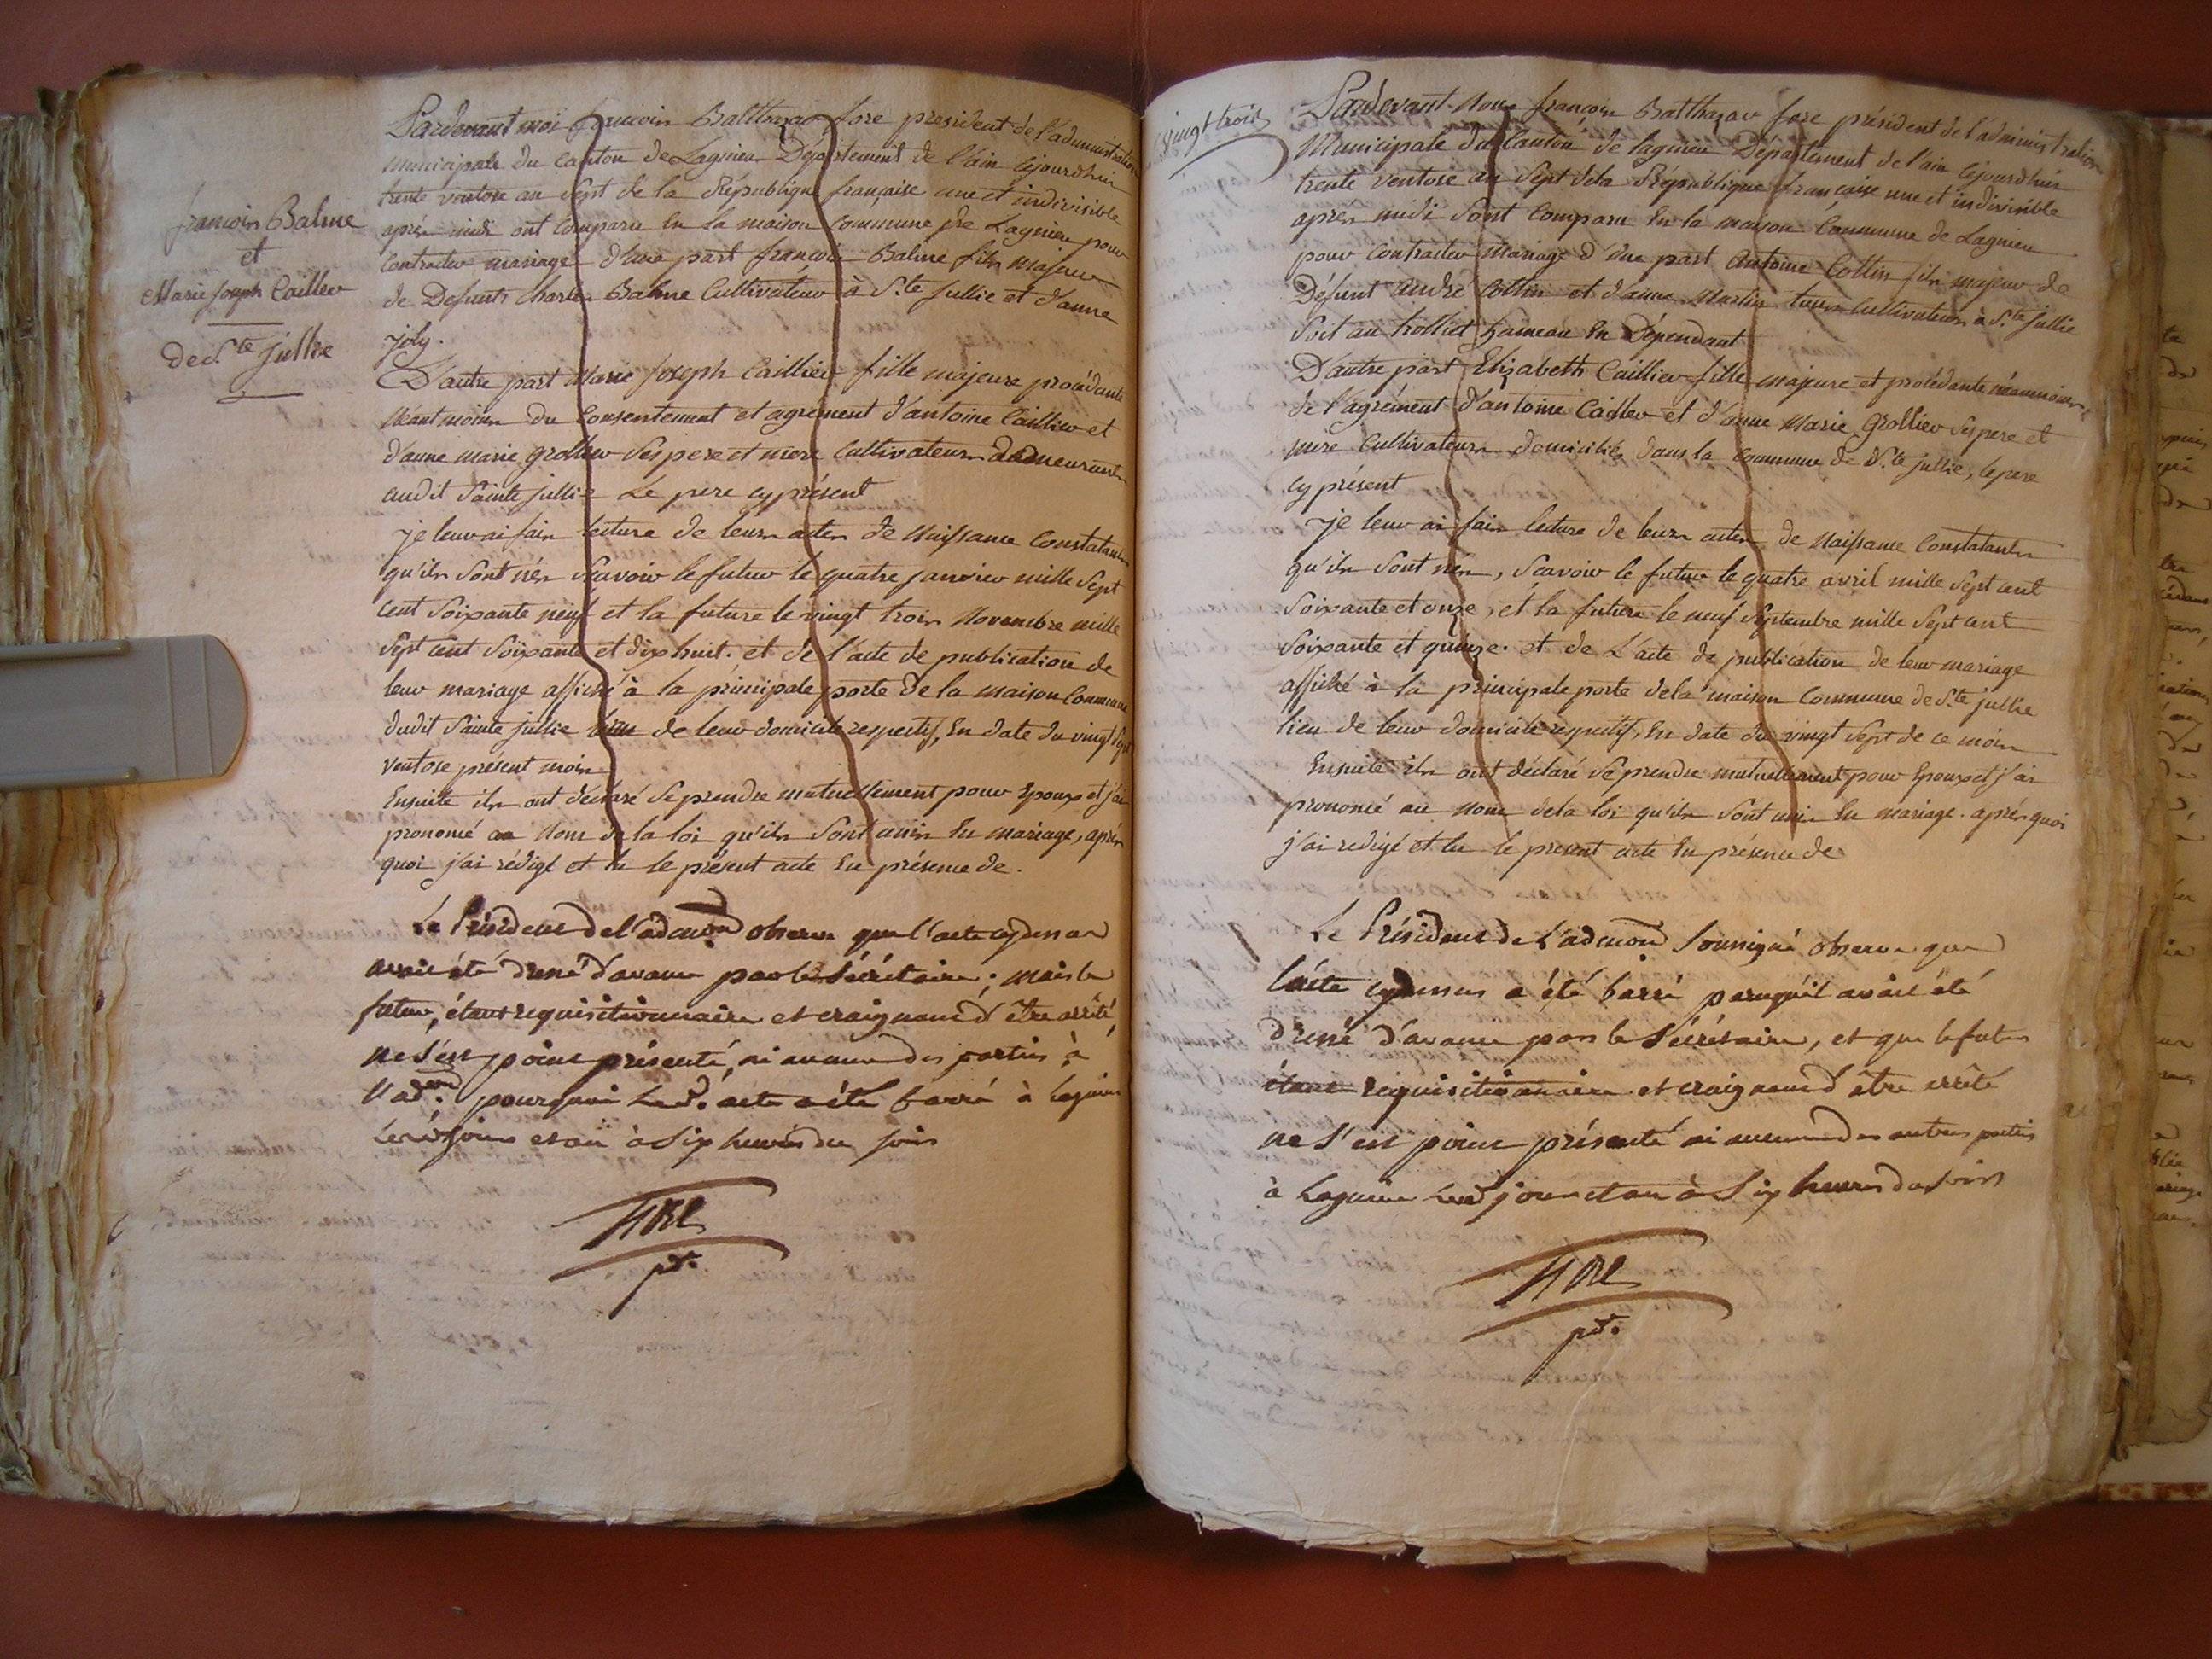 françois Balme
et
Marie Joseph Caillier
de Ste Jullie
Pardevant moi françois Balthazar fore president de l'administration
Municipale du canton de Lagnieu Département de l'ain cejourdhui
trente ventose an Sept de la République française une et indivisible
après midi ont comparu en la maison commune de Lagnieu pour
contracter mariage d'une part françois Balme fils majeur
de Defunts charles Balme Cultivateur à S.te Jullie et d'anne
joly.
D'autre part Marie Joseph Caillier fille majeure procédante
Néantmoins du Consentement et agrément d'antoine Caillier et
d'anne marie grollier Ses pere et mere Cultivateurs demeurants
audit Sainte Jullie Le pere cy présent
je leur ai fais lecture de leurs actes de Naissance Constatants
qu'ils Sont nés Scavoir le futur le quatre janvier mille Sept
cent Soixante neuf et la future le vingt trois Novembre mille
Sept cent Soixante et dix huit. et de l'acte de publication de
leur mariage affiché à la principale porte de la maison Commune
dudit Sainte Jullie lieu de leur domicile respectif, En date du vingt Sept
ventose présent mois
Ensuite ils ont déclaré Se prendre mutuellement pour Epoux et j'ai
prononcé au Nom de la loi qu'ils Sont unis En mariage, après
quoi j'ai rédigé et lu le présent acte En présence de.
Le Président de l'admon observe que l'acte cydessus
avait été dressé d'avance par le Sécrétaire; mais le
futur, étant requisitionnaire et craignant d'être arrêté,
ne s'est point présenté, ni aucune des parties à
l'ad.on pourquoi led. acte a été barré à Lagnieu
led. jour et an à Six heures du soir
fore
pdt.
vingt trois
Pardevant Nous françois Balthazar fore président de l'administration
Municipale du Canton de lagnieu Département de l'ain cejourdhui
trente ventose an Sept dela République française une et indivisible
après midi Sont Comparu En la maison Commune de Lagnieu
pour Contracter Mariage d'une part Antoine Collin fils majeur de
Défunt andré Collin et d'anne Martin Cultivateurs à S.te Jullie
Soit au trolliet hameau En Dépendant
D'autre part Elizabeth Caillier fille majeure et procédante néanmoins
de l'agrément d'antoine Caillier et d'anne Marie Grollier Ses pere et
mere Cultivateurs domiciliés dans la Commune de S.te jullie, le pere
cy présent
je leur ai fais lecture de leurs actes de Naissance Constatants
qu'ils Sont nés, Scavoir le futur le quatre avril mille Sept cent
Soixante et onze, et la future le neuf Septembre mille Sept cent
Soixante et quinze. et de L'acte de publication de leur mariage
affiché à la principale porte dela maison Commune de S.te jullie
lieu de leur domicile respectif, En date du vingt Sept de ce mois
Ensuite ils ont déclaré Se prendre mutuellement pour Epoux et j'ai
prononcé au Nom dela loi qu'ils Sont unis En mariage. après quoi
j'ai redigé et lu le present acte En présence de
Le Président de l'admon Soussigné observe que
l'acte cydessus a été barré parcequ'il avait été
dressé d'avance par le Sécrétaire, et que le futur
étant requisitionnaire et craignant d'être arrêté
ne s'est point présenté ni aucune des autres parties
à Lagnieu led. jour et an à Six heures du soir
fore
pdt.